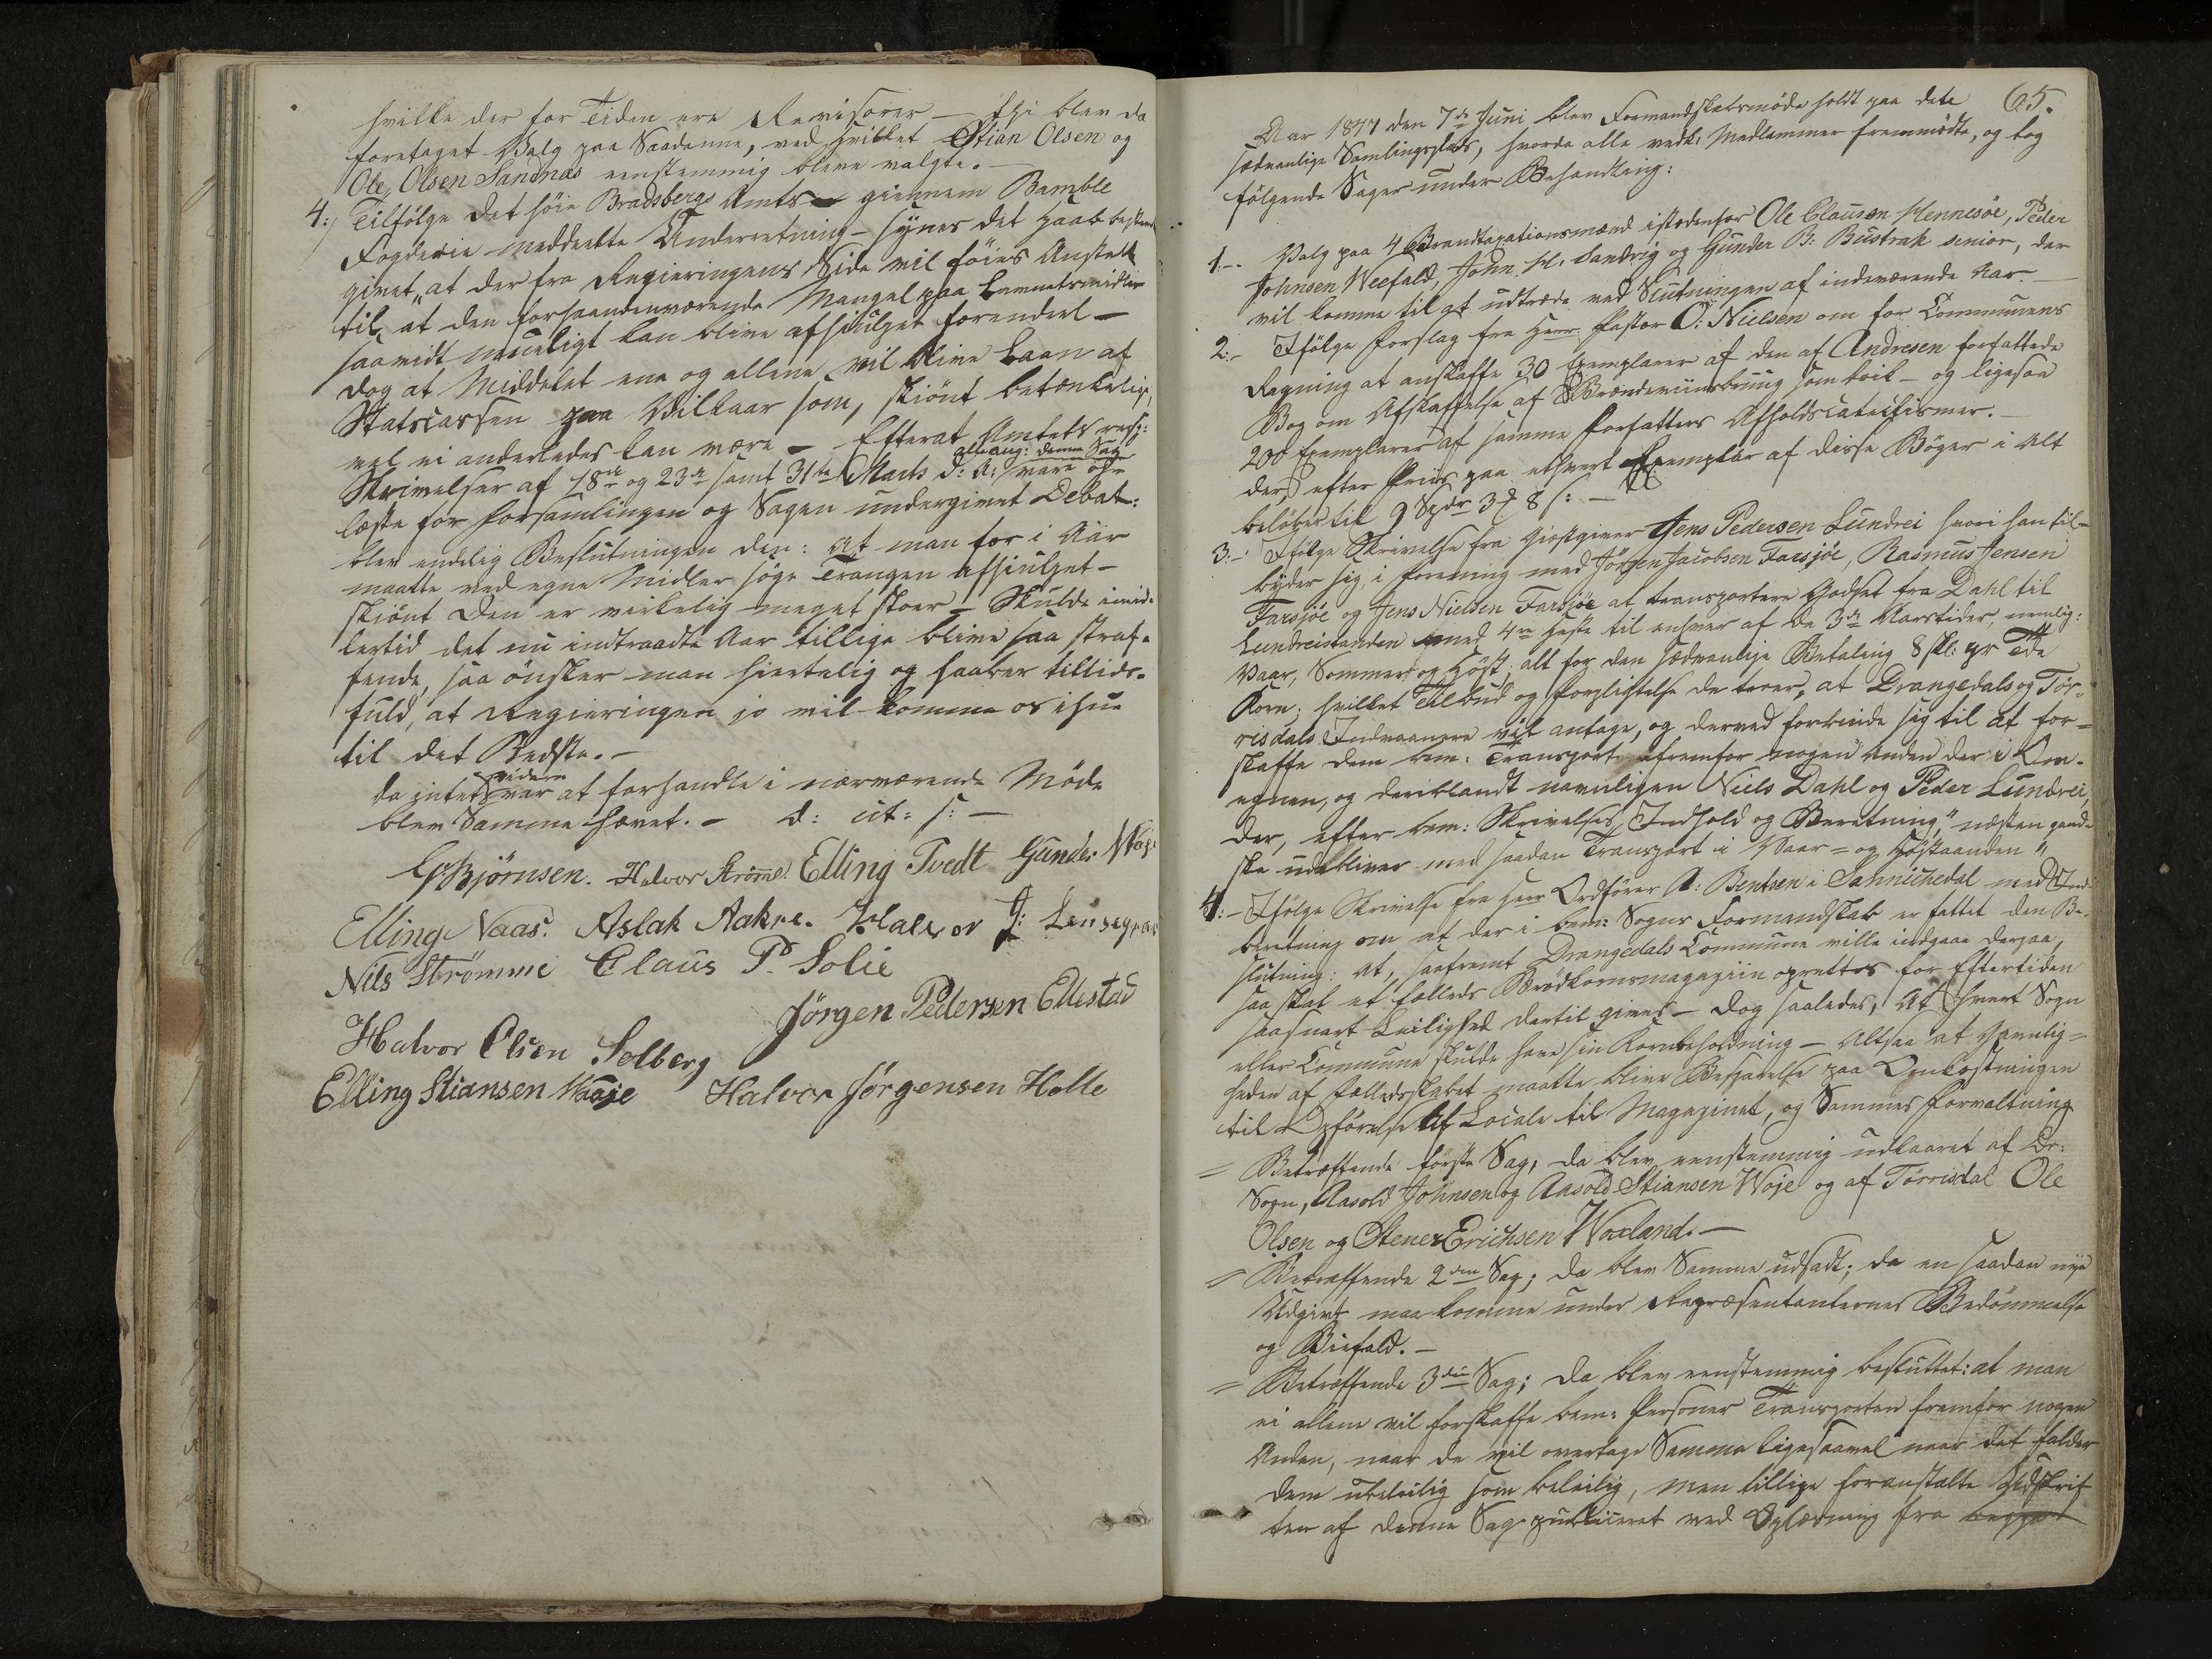 hvilke der for Tiden ere Revisorer – thi blev da
foretaget Valg paa Saadanne, ved hvilket Stian Olsen og
Ole Olsen Sannæs eenstemmig bleve valgte. –
4:/ Tilfölge det höie Bradsbergs Amts giennem Bamble
Fogderie meddeelte Underretning – synes det Haab
givet, at der fra Regieringens Side vil föies Anstalt
til at den forhaandenværende Mangel paa Levnetsmidler
saavidt mueligt kan blive afhiulpet forendeel –
dog at Middelet ene og allene vil blive Laan af
Statscassen paa Vilkaar som, skiönt betænkelige,
vel ei anderledes kan være – Efterat Amtets resp:
ang: denne Sag
Skrivelser af 18de og 23de samt 31te Marts d: A: vare op-
læste for Forsamlingen og Sagen undergivet Debat:
blev endelig Beslutningen den: At man for i Aar
maatte ved egne Midler söge Trangen afhiulpet –
skiönt den er virkelig meget stoer – Skulde imid-
lertid det nu indtraadte Aar tillige blive saa straf-
fende, saa önsker man hiertelig og haaber tillids-
fuld, at Regieringen jo vil komme os ihu
til det Bedste. –
videre
da intet var at forhandle i nærværende Möde
blev Samme hævet. – d: ut: s: –
G Bjørnsen. Halvor Strömme. Elling Tvedt Gunder Woje
Elling Naas. Aslak Aakre. Halvor J: Lensegrav
Nils Strömme Claus P. Solie
Jörgen Pedersen Ellestad
Halvor Olsen Solberg
Elling Stiansen Waaje Halvor Jörgensen Holte
65.
Aar 1847 den 7de Juni blev Formandskabsmöde holdt paa dets
sædvanlige Samlingsplads, hvorda alle vedk: Medlemmer fremmödte, og tog
fölgende Sager under Behandling:
1:- Valg paa 4 Brandtaxationsmænd istedenfor Ole Clausen Hennesöe, Peder
Johnsen Weefald, John H. Sandvig og Gunder B: Bustrak senior, der
vil komme til at udtræde ved Slutningen af indeværende Aar. –
2:- Ifölge Forslag fra Herr Pastor O: Nielsen om for Communens
Regning at anskaffe 30 Exemplarer af den af Andresen forfattede
Bog om Afskaffelse af Brændeviinsbrug som Drik – og ligesaa
200 Exemplarer af samme Forfatters Afholdscatechismer. –
der, efter Priis paa ethvert Exemplar af disse Böger i Alt
belöber til 9 Spdr 3 8 s: –
3:- Ifölge Skrivelse fra Giæstgiver Jens Pedersen Lundrei hvori han til-
byder sig, i Forening med Jörgen Jacobsen Farsjöe, Rasmus Jensen
Farsjöe og Jens Nielsen Farsjöe at transportere Godset fra Dahl til
Lundreistranden med 4re Heste til enhver af de 3de Aarstider, nemlig:
Vaar, Sommer og Höst, alt for den sædvanlige Betaling 8 skl: pr Tde
Korn; hvilket Tilbud og Forpligtelse de troer, at Drangedals og Tör-
risdals Indvaanere vil antage, og derved forbinde sig til at for-
skaffe dem bem: Transport fremfor nogen Anden der i Om-
egnen, og deriblandt navnligen Niels Dahl og Peder Lundrei,
der, efter bem: Skrivelses Indhold og Beretning, "næsten gand-
ske udebliver med saadan Transport i Vaar- og Höstaanden".
4:- Ifölge Skrivelse fra Herr Ordförer A: Bentsen i Sannichedal med
beretning om at der i bem: Sogns Formandskab er fattet den Be-
slutning: At, saafremt Drangedals Commune ville indgaae derpaa,
saa skal et fælleds Brödkornsmagaziin oprettes for Eftertiden
saasnart Leilighed dertil gives – dog saaledes, At hvert Sogn
eller Commune skulde have sin Kornbeholdning – Altsaa at Navnlig-
heden af Fælledsskabet maatte blive Besparelse paa Omkostningen
til Opförelse af Locale til Magazinet, og Sammes Forvaltning
= Betræffende förste Sag, da blev eenstemmig udkaaret af Dr:
Sogn, Aasold Johnsen og Aasold Stiansen Woje og af Törrisdal Ole
Olsen og Stener Erichsen Woxland. –
= Betræffende 2den Sag; da blev Samme udsadt; da en saadan nye
Udgivt maa komme under Repræsentanternes Bedömmelse
og Biefald. –
= Betræffende 3die Sag; da blev eenstemmig besluttet: at man
ei allene vil forskaffe bem: Personer Transporten fremfor nogen
Anden, naar de vil overtage Samme ligesaavel naar det falder
dem ubeleilig som beleilig, men tillige foranstalte Udskrif
ten af denne Sag publiceret ved Oplæsning fra